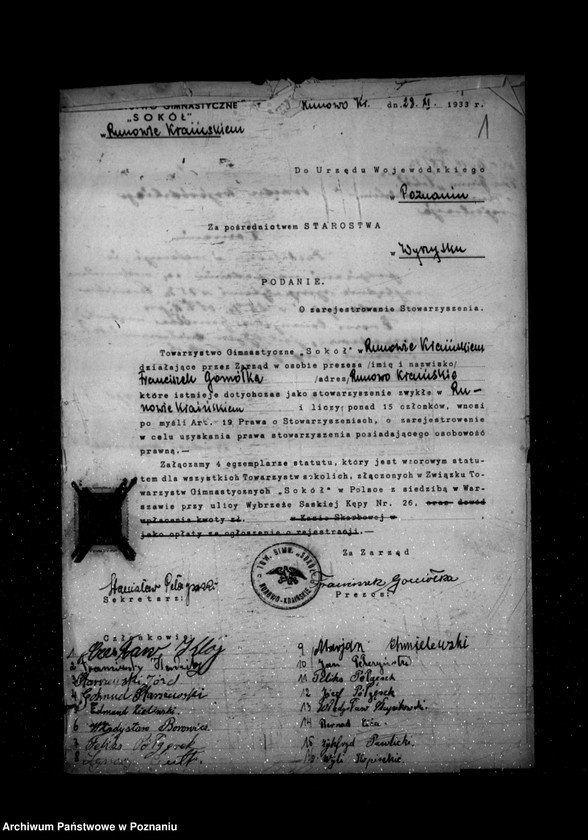 GIMNASTYCZNE
„SOKÓŁ"
w Runowie Kraińskiem
Runowo Kr. dn. 23. XI. 1933 r.
1
Do Urzędu Wojewódzkiego
w Poznaniu
Za pośrednictwem STAROSTWA
w Wyrzysku
PODANIE.
O zarejestrowanie Stowarzyszenia.
Towarzystwo Gimnastyczne „Sokół" w Runowie Kraińskiem
działające przez Zarząd w osobie prezesa /imię i nazwisko/
Franciszek Gomółka /adres/ Runowo Kraińskie
które istnieje dotychczas jako stowarzyszenie zwykłe w Ru-
nowie Kraińskiem i liczy: ponad 15 członków, wnosi
po myśli Art. 19 Prawa o Stowarzyszeniach, o zarejestrowanie
w celu uzyskania prawa stowarzyszenia posiadającego osobowość
prawną.—
Załączamy 4 egzemplarze statutu, który jest wzorowym statu-
tem dla wszystkich Towarzystw sokolich, złączonych w Związku To-
warzystw Gimnastycznych „Sokół" w Polsce z siedzibą w War-
szawie przy ulicy Wybrzeże Saskiej Kępy Nr. 26, oraz dowód
wpłacenia kwoty zł. w Kasie Skarbowej w
jako opłaty za ogłoszenia o rejestracji.—
Za Zarząd
TOW. GIMN. „SOKÓŁ"
RUNOWO-KRAIŃSKIE
Stanisław
Franciszek Gomółka
Sekretarz:
Prezes:
Członkowie
1 Czesław
2
3 Józef
4
5 Edmund
6 Władysław Borowicz
7 Feliks Półgęsek
8
9 Marjan Chmielewski
10 Jan
11 Feliks Półgęsek
12 Józef Półgęsek
13 Władysław
14
15 Pawlicki
16
Archiwum Państwowe w Poznaniu
szukajwarchiwach.gov.pl